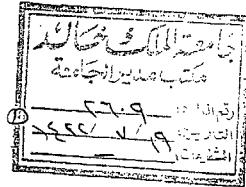 جامعة الملك خالد
مكتب مدير الجامعة
رقم القيد: ٢٦٠٩
التاريخ: ١٩ / ٧ / ١٤٢٢
المشفوعات: —